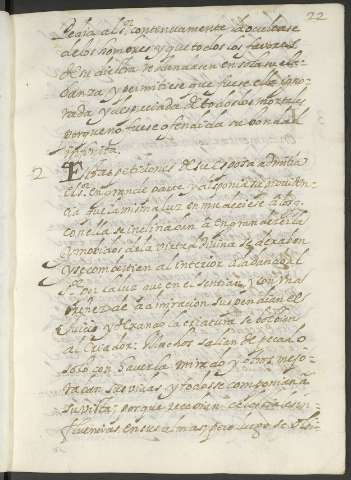 22
Pedia al Sr. continuamente la ocultase
de los hombres y que todos los favores
de su diestra redundasen en sola su ala-
banza y permitiese que fuese ella igno-
rada y despreciada de todos los mortales
porque no fuese ofendida su bondad
infinita.
2 Estas peticiones de su Esposa admitia
el Sr. en grande parte y disponia su providen-
cia que la misma luz enmudeciese a los q.
con ella se inclinaban a engrandecerla
y movidos de la virtud divina se dexaban
y se combertian al interior alabando al
Sr. por la luz que en el sentian y con una
de admiracion suspendian el
juicio y dexando la criatura se bolbian
al Criador. Muchos salian de pecado
solo con haverla mirado y otros mejo-
raban sus vidas y todos se componian a
su vista; porque recebian celestiales in-
fluencias en sus almas; pero luego se olbi-